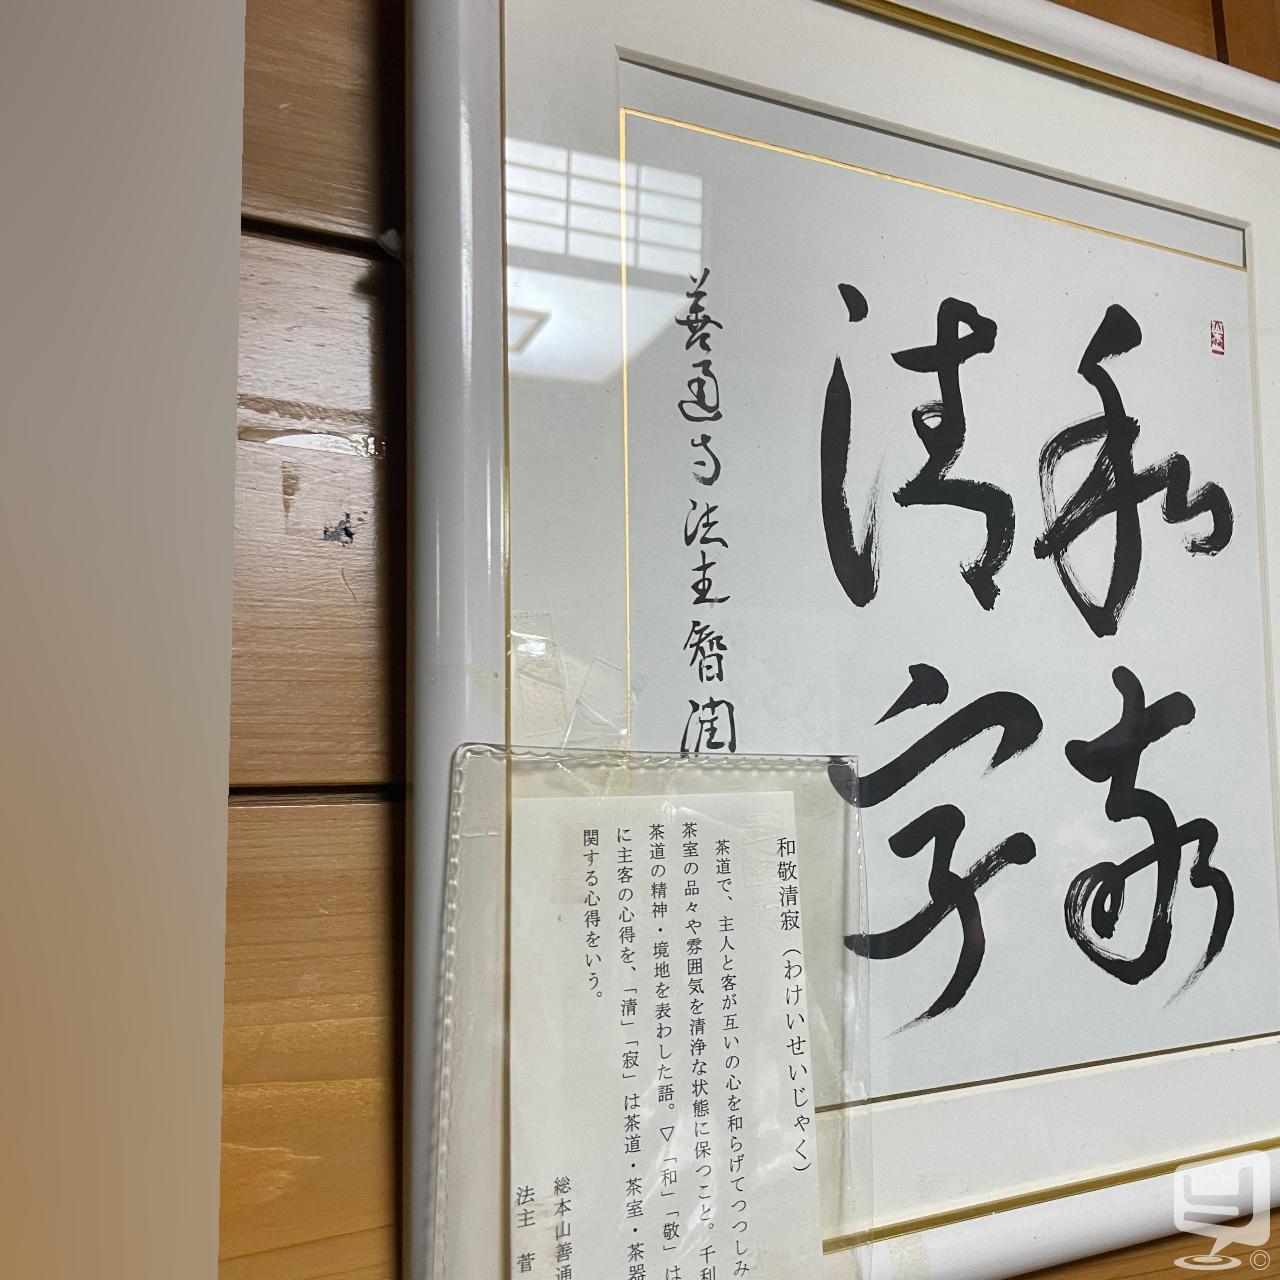 和敬
清寂
善通寺法主智潤
和敬清寂（わけいせいじゃく）
茶道で、主人と客が互いの心を和らげてつつしみ
茶室の品々や雰囲気を清浄な状態に保つこと。千利
茶道の精神・境地を表わした語。▽「和」「敬」は
に主客の心得を、「清」「寂」は茶道・茶室・茶器
関する心得をいう。
総本山善通
法主 菅